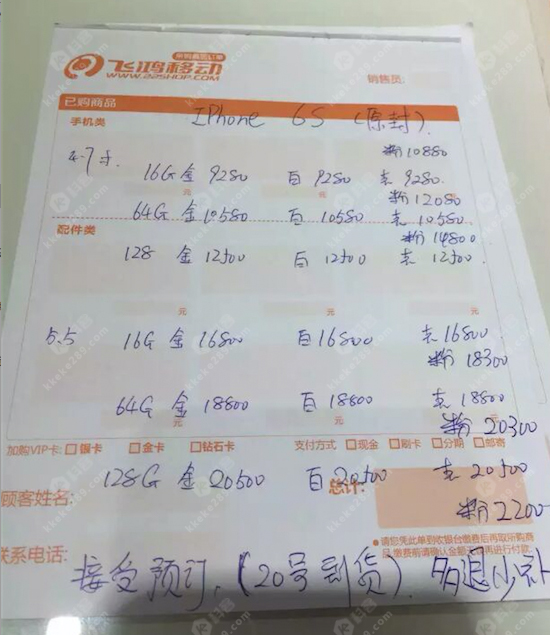 飞鸿移动
WWW.22SHOP.COM
销售员:
已购商品
IPhone 6S (原封).
手机类
粉 10880
4.7寸
16G 金 9280 白 9280 灰 9280.
元
粉 12080
64G 金 10580 白 10580 灰 10580
粉 14800
配件类
128 金 12500 白 12500 灰 12500
元 元
5.5 16G 金 16800 白 16800 灰 16800
粉 18300
64G 金 18800 白 18800 灰 18800
粉 20300
加购VIP卡: 银卡 金卡 钻石卡 支付方式 现金 刷卡 分期 邮寄
128G 金 20500 白 20500 灰 20500
顾客姓名: 总计:
粉 2200
●请您凭此单到收银台缴费后再取所购商
品,缴费前请确认金额
再进行付款.
联系电话:
接受预订, (20号到货). 多退少补